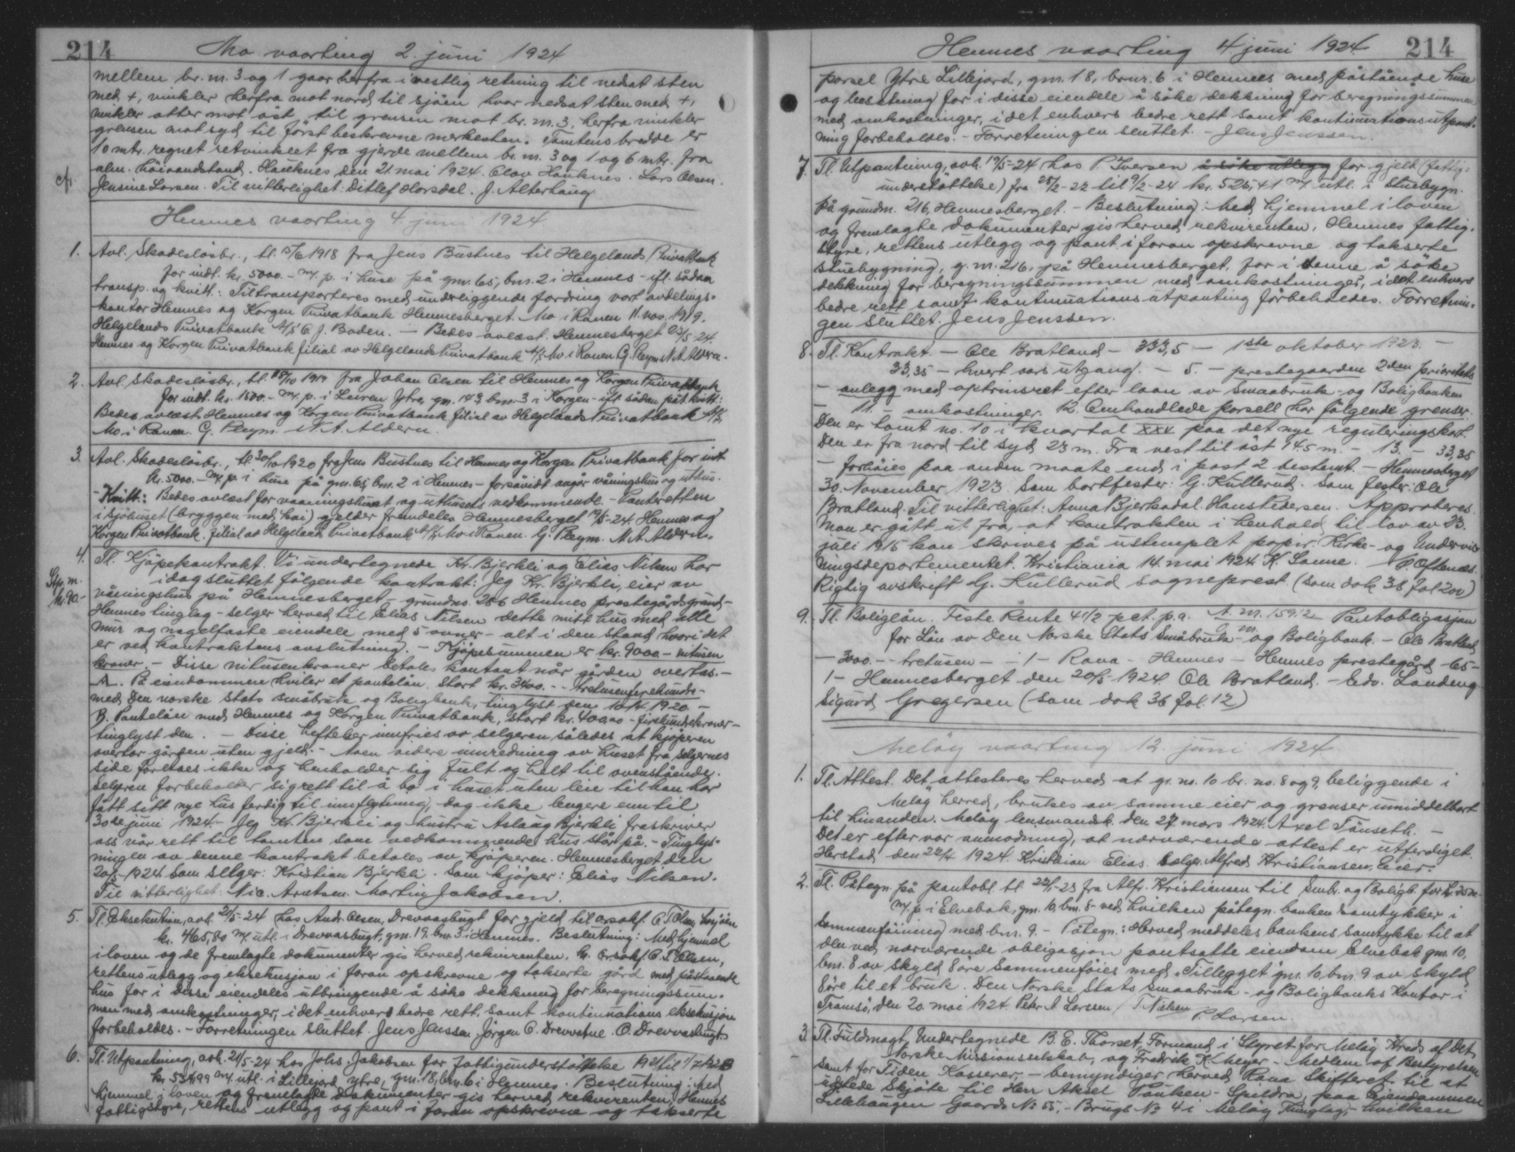 214
Mo vaarting 2 juni 1924
mellem br. nr. 3 og 1 gaar herfra i vestlig retning til nedsat sten
med +, vinkler herfra mot nord til sjöen hvor nedsat sten med +,
vinkler atter mot öst til grensen mot br. nr. 3, herfra vinkler
grensen mot syd til först beskrevne merkesten. Tomtens bredde er
10 mtr. regnet retvinklet fra gjerde mellem br. nr. 3 og 1 og 6 mtr. fra
alm. höivandstand. Hauknes den 21 mai 1924. Olav Hauknes. Lars Olsen.
Jensine Larsen. Til vitterlighet: Ditlef Horsdal. J. Alterhaug
Hemnes vaarting 4 juni 1924
1. Avl. Skadeslösbr., tl. 15/6 1918 fra Jens Bustnes til Helgelands Privatbank
for indt. kr. 5000.- m/ p. i huse på gnr. 65, bnr. 2 i Hemnes - ift. sådan
transp. og kvitt: Tiltransporteres med underliggende fordring vor avdelings-
kontor Hemnes og Korgen Privatbank Hemnesberget. Mo i Ranen 11. nov. 1919.
Helgelands Privatbank A/S C. J. Boden. - Bedes avlæst. Hemnesberget 23/5-24.
Hemnes og Korgen Privatbank filial av Helgelands Privatbank A/S Mo i Ranen G. Reym N. A. Aldern.
2. Avl. Skadeslösbr., tl. 1919 fra Johan Olsen til Hemnes og Korgen Privatbank
for indt. kr. 1500.- m/ p. i Leiren Ytre, gnr. 143 bnr. 3 i Korgen - ift sådan påt. kvitt:
Bedes avlæst: Hemnes og Korgen Privatbank filial av Helgelands Privatbank A/S
Mo i Ranen. G. Reym N. A. Aldern.
3. Avl. Skadeslösbr., tl. 30/10 1920 fra Jens Bustnes til Hemnes og Korgen Privatbank for indt
kr. 5000.- m/ p. i huse på gnr. 65 bnr. 2 i Hemnes - forsåvidt angår våningshus og uthus.
- Kvitt: Bedes avlæst for vaaningshuset og uthusets vedkommende. - Panteretten
i sjöhuset (bryggen med kai) gjelder fremdeles. Hemnesberget 19/5-24. Hemnes og
Korgen Privatbank. filial av Helgelands Privatbank A/S Mo i Ranen. G. Reym. N. A. Aldern.
4. Tl. Kjöpekontrakt. Vi undertegnede Kr. Bjerkli og Elias Nilsen har
Stpl. m. kr. 90.- idag sluttet fölgende kontrakt: Jeg Kr. Bjerkli, eier av
våningshus på Hemnesberget - grundnr. 256 Hemnes prestegårdsgrund -
Hemnes tinglag - selger herved til Elias Nilsen dette mitt hus med alle
mur og nagelfaste eiendele med 5 ovner - alt i den stand hvori det
er ved kontraktens avslutning. - Kjöpesummen er kr. 9000 - nitusen
kroner. - Disse nitusenkroner betales kontant når gården overtas. -
A. På eiendommen hviler et pantelån stort kr. 3400.- - tretusenfirehundre-
med den norske stats småbruk og Boligbank, tinglyst den 1920 -
B. Pantelån med Hemnes og Korgen Privatbank, stort kr. 400.00 - firehundrekroner -
tinglyst den. - Disse heftelser innfries av selgeren således at kjöperen
overtar gården uten gjeld. - Noen videre innredning av huset fra selgernes
side foretaes ikke og henholder sig fult og helt til ovenstående.
Selgeren forbeholder sig rett til å bo i huset uten leie til han har
fått sitt nye hus ferdig til innflytning, dog ikke lengere enn til
30te juni 1924 - Jeg Kr. Bjerkli og hustru Aslaug Bjerkli fraskriver
oss vår rett til tomten som vedkommende hus står på. - Tinglys-
ningen av denne kontrakt betales av kjöperen. Hemnesberget den
20/5-1924. Som selger: Kristian Bjerkli. Som kjöper: Elias Nilsen.
Til vitterlighet: Martin Jakobsen.
5. Tl. Eksekution, avh. 21/5-24 hos Andr. Olsen, Drevvasbugt for gjeld til orsakf. Mosjöen
kr. 465,80 m/ utl. i Drevvasbugt, gnr. 19. bnr. 3 i Hemnes. Beslutning: Med hjemmel
i loven og de fremlagte dokumenter gis herved rekvirenten, hr. orsakf. Olsen,
rettens utlegg og eksekusjon i foran opskrevne og takserte gård med påstaaende
hus for i disse eiendeles utbringende å söke dekkning for beregningssum-
men med omkostninger, i det enhvers bedre rett, samt kontinuations eksekusjon
forbeholdes. - Forretningen sluttet. Jens Jenssen, Jörgen C. Drevvatne. O. Drevvasbugt
6. Tl. Utpantning, avh. 21/5-24 hos Johs. Jakobsen for fattigunderstöttelse
kr. m/ utl. i Lillejord ytre, gnr. 18, bnr. 6 i Hemnes. Beslutning: Med
hjemmel i loven og fremlagte dokumenter gis herved rekvirenten, Hemnes
fattigstyre, rettens utlegg og pant i foran opskrevne og takserte
Hemnes vaarting 4 juni 1924
214
porsel Ytre Lillejord, gnr. 18, brnr. 6 i Hemnes med påstående huse
og besetning for i disse eiendele å söke dekkning for beregningssummen
med omkostninger, i det enhvers bedre rett samt kontinuationsutpant-
ning forbeholdes. - Forretningen sluttet. - Jens Jenssen.
7. Tl. Utpantning, avh. 19/5-24 hos P. Iversen å söke utlegg for gjeld (fattig-
understöttelse) fra 28/2-22 til 9/2-24 kr. 526,41 m/ utl. i Stuebygn.
på grundnr. 216, Hemnesberget. - Beslutning: Med hjemmel i loven
og fremlagte dokumenter gis herved rekvirenten, Hemnes fattig-
styre, rettens utlegg og pant i foran opskrevne og takserte
stuebygning, g. nr. 216, på Hemnesberget, for i denne å söke
dekkning for beregningssummen med omkostninger, i det enhvers
bedre rett samt kontinuationsutpanting forbeholdes. Forretnin-
gen sluttet. Jens Jenssen.
8. Tl. Kontrakt - Ole Bratland - 333,5 - 1ste oktober 1923. -
33,35 - hvert aars utgang. - 5. - prestegaarden 2den prioritets
- anlegg med optrinsret efter laan av Smaabruk- og Boligbanken
11. - omkostninger. 12. Omhandlede parsell har fölgende grenser.
Den er tomt no. 10 i kvartal XXX paa det nye reguleringskart.
Den er fra nord til syd 23 m. Fra vest til öst 14.5 m. - 13. - 33,35
- forhöies paa anden maate end i post 2 bestemt. - Hemnesberget
30. November 1923. Som bortfester: G. Kullerud. Som fester: Ole
Bratland. Til vitterlighet: Anna Bjerkadal. Hans Pedersen. Approberes.
Man er gått ut fra, at kontrakten i henhold til lov av 23.
juli 1915 kan skrives på ustemplet papir. Kirke- og Undervis-
ningsdepartementet. Kristiania 14. mai 1924. K. Sonne.
Rigtig avskrift G. Kullerud sogneprest (som dok 38 fol 200)
9. Tl. Boliglån. Faste Rente 4 1/2 pct. p.a. A. nr. 159/2 Pantobligasjon
for Lån av Den Norske Stats Småbruk- og Boligbank. - Ole Bratland
- 3000.- - tretusen - - 1 - Rana - Hemnes - Hemnes prestegård - 65 -
1 - Hemnesberget den 20/5 - 1924 Ole Bratland. - Edv. Landeng
Sigurd Gregersen (som dok 36 fol. 12)
Meløy vaarting 12 juni 1924
1. Tl. Attest. Det attesteres herved at gr. no. 10 br. no. 8 og 9, beliggende i
Meløy herred, brukes av samme eier og grenser umiddelbart
til hinanden. Meløy lensmandsk. den 27 mars 1924. Axel Tånseth. -
Det er efter vor anmodning, at nærværende attest er utferdiget.
Herstad den 22/4 1924. Kristian Elias. Selger. Alfred Kristiansen. Eier.
2. Tl. Påtegn. på pantobl. tl. 22/6-23 fra Alfr. Kristiansen til Småbr. og Boligb. for kr.
m/ p. i Elvebak, gnr. 10, bnr. 8 ved hvilken påtegn. banken samtykker i
sammenföining med bnr. 9. - Påtegn.: Herved meddeles bankens samtykke til at
den ved nærværende obligasjon pantsatte eiendom Elvebak gnr. 10,
bnr. 8 av skyld 8 öre sammenföies med "Tillegget" gnr. 10, bnr. 9 av skyld
8 öre til et bruk. Den Norske Stats Smaabruk- og Boligbanks Kontor i
Tromsö, den 20 mai 1924. Pedr. A. Larssen / T. Nilsen
P. Larsen.
3. Tl. Fuldmagt. Undertegnede B. E. Thorset, Formand i Styret for Meløy Kreds af Det
Norske Missionsselskab, og Fredrik K. Meyer - Medlem af Bestyrelsen
samt for Tiden Kasserer, - bemyndiger herved Rana Skifteret til at
udstede Skjöte til Herr Aksel Paulsen - Spildra, paa Eiendommen
Lillehaugen Gaards No 55, - Brugs No 4 i Meløy Tinglag, - hvilken